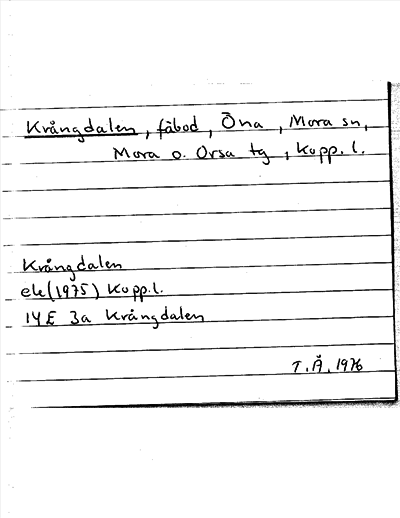 Krångdalen, fäbod, Öna, Mora sn,
Mora o. Orsa tg, Kopp. l.
Krångdalen
ek(1975) Kopp.l.
14E 3a Krångdalen
T.Å. 1976